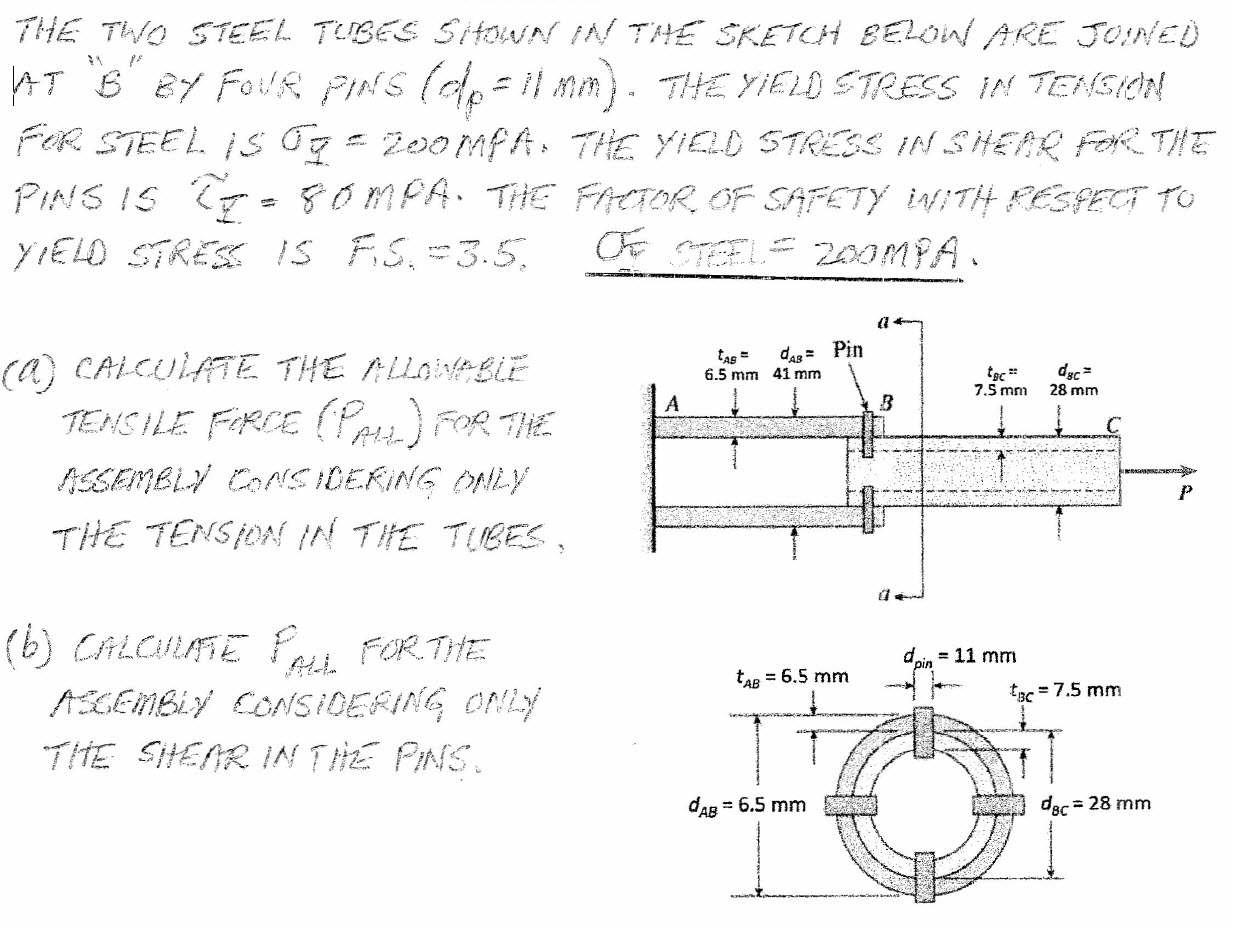 THE TWO STEEL TUBES SHOWN IN THE SKETCH BELOW ARE JOINED
AT "B" BY FOUR PINS (dp = 11 mm). THE YIELD STRESS IN TENSION
FOR STEEL IS σY = 200 MPA. THE YIELD STRESS IN SHEAR FOR THE
PINS IS τY = 80 MPA. THE FACTOR OF SAFETY WITH RESPECT TO
YIELD STRESS IS F.S. = 3.5. σY STEEL = 200MPA.
(a) CALCULATE THE ALLOWABLE
TENSILE FORCE (PALL) FOR THE
ASSEMBLY CONSIDERING ONLY
THE TENSION IN THE TUBES.
a
tAB = dAB = Pin
6.5 mm 41 mm
tBC = dBC =
7.5 mm 28 mm
A
B
C
P
a
(b) CALCULATE PALL FOR THE
ASSEMBLY CONSIDERING ONLY
THE SHEAR IN THE PINS.
dpin = 11 mm
tAB = 6.5 mm
tBC = 7.5 mm
dAB = 6.5 mm
dBC = 28 mm